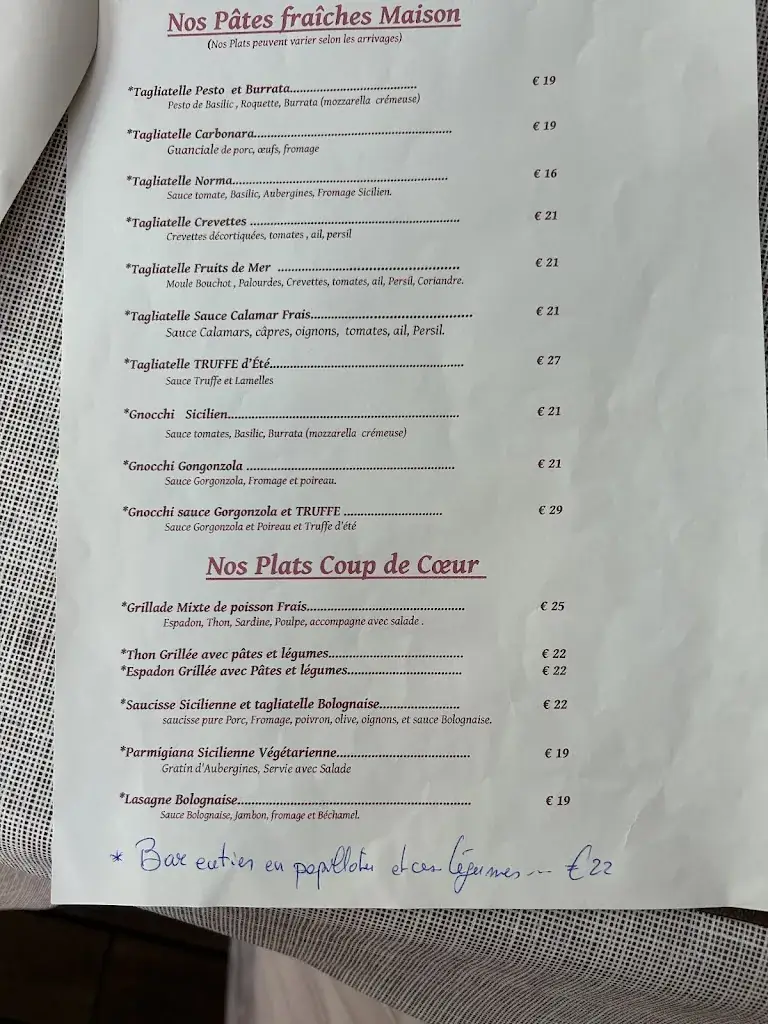 Nos Pâtes fraîches Maison
(Nos Plats peuvent varier selon les arrivages)
*Tagliatelle Pesto et Burrata................................... € 19
Pesto de Basilic , Roquette, Burrata (mozzarella crémeuse)
*Tagliatelle Carbonara....................................................... € 19
Guanciale de porc, œufs, fromage
*Tagliatelle Norma............................................................ € 16
Sauce tomate, Basilic, Aubergines, Fromage Sicilien.
*Tagliatelle Crevettes .......................................................... € 21
Crevettes décortiquées, tomates , ail, persil
*Tagliatelle Fruits de Mer .................................................. € 21
Moule Bouchot , Palourdes, Crevettes, tomates, ail, Persil, Coriandre.
*Tagliatelle Sauce Calamar Frais............................................. € 21
Sauce Calamars, câpres, oignons, tomates, ail, Persil.
*Tagliatelle TRUFFE d'Été...................................................... € 27
Sauce Truffe et Lamelles
*Gnocchi Sicilien................................................................ € 21
Sauce tomates, Basilic, Burrata (mozzarella crémeuse)
*Gnocchi Gongonzola .......................................................... € 21
Sauce Gorgonzola, Fromage et poireau.
*Gnocchi sauce Gorgonzola et TRUFFE ........................... € 29
Sauce Gorgonzola et Poireau et Truffe d'été
Nos Plats Coup de Cœur
*Grillade Mixte de poisson Frais............................................ € 25
Espadon, Thon, Sardine, Poulpe, accompagne avec salade .
*Thon Grillée avec pâtes et légumes...................................... € 22
*Espadon Grillée avec Pâtes et légumes................................ € 22
*Saucisse Sicilienne et tagliatelle Bolognaise....................... € 22
saucisse pure Porc, Fromage, poivron, olive, oignons, et sauce Bolognaise.
*Parmigiana Sicilienne Végétarienne..................................... € 19
Gratin d'Aubergines, Servie avec Salade
*Lasagne Bolognaise................................................................ € 19
Sauce Bolognaise, Jambon, fromage et Béchamel.
* Bar entier en papillote et légumes ... € 22